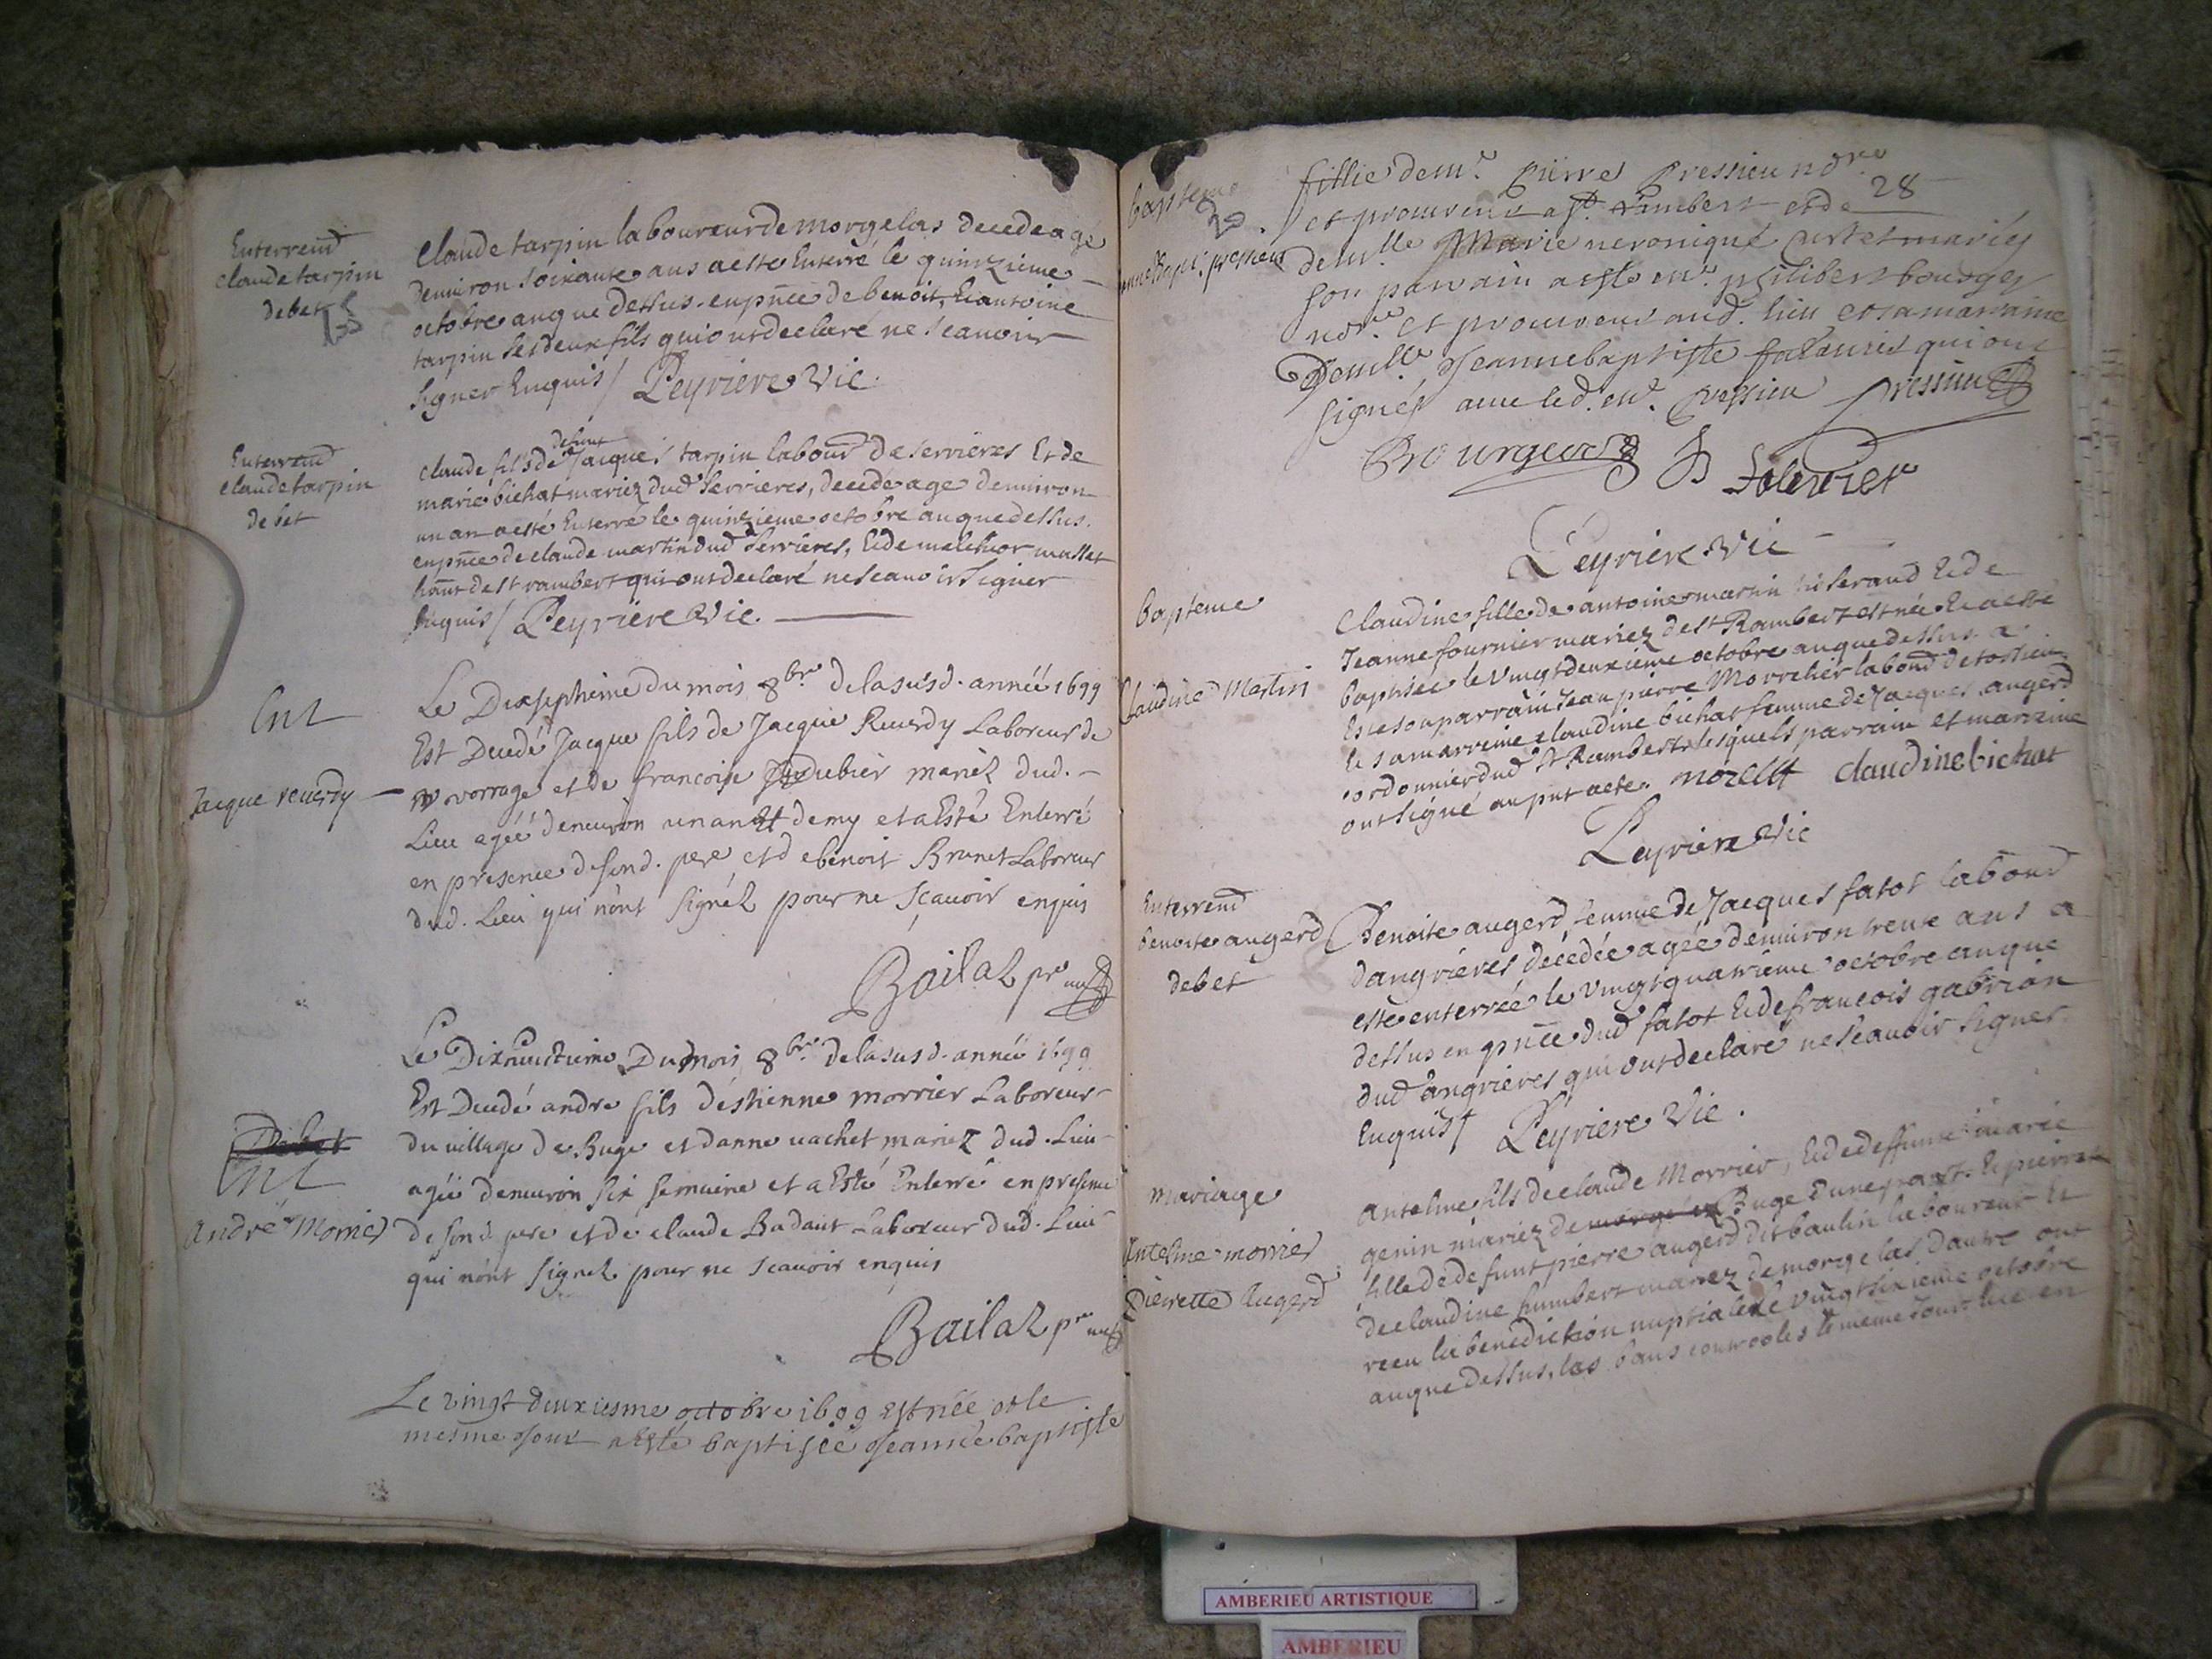 Enterremt
claude tarpin
debet
claude tarpin laboureur de morgelas decede agé
denuiron soixante ans a esté Enterré le quinzieme
octobre an que dessus. en pnce de benoit, et antoine
tarpin ses deux fils qui ont declaré ne scauoir
signer Enquis / Leyriere Vic.
Enterremt
claude tarpin
debet
claude fils de defunt Jacques tarpin labour de serrieres Et de
marie bichat mariez dud serrieres, decedé agé denuiron
un an a esté Enterré le quinzieme octobre an que dessus.
en pnce de claude martin dud serrieres, Et de melchior mullet
de st rambert qui ont declaré ne scauoir signer
Enquis / Leyriere Vic.
Ent
Jacque reuerdy
Le Dixseptieme du mois 8bre de la susd. année 1699
Est Decedé Jacque fils de Jacque Reuerdy Laboreur de
Movorrage et de francoise Dubier mariéz dud.
Lieu agéé denuiron un an Et demy et a Esté Enterré
en presence de sond. pere et de benoit Brunet Laboreur
dud. Lieu qui n'ont signéz pour ne sçauoir enquis
Bailaz pre
Debet
Ent
André Morrier
Le Dixneuctieme Du mois 8bre de la susd. année 1699
Est Decedé andre fils d'estienne morrier Laboreur
du village de Buge et danne uachet mariez dud. Lieu
agéé denuiron six semaine et a Esté Enterré en presence
de sond. pere et de claude Badaut Laboreur dud. Lieu
qui n'ont signez pour ne scauoir enquis
Bailaz pre
Le vingt deuxiesme octobre 1699 est néé et le
mesme jour a esté baptiséé Jeanne baptiste
28
bapteme
Jeanne Bapt. pressieu
fillie de mr. pierre pressieu nore
et procureur a st. rambert et de
demlle Marie ueronique mariés
son parrain a esté mr. philibert bourges
nore et procureur aud. lieu et sa marraine
Demlle Jeanne baptiste qui ont
signés auec led. mr. pressieu pressieu
Bourgeois JB folunier
Leyriere Vic
bapteme
Claudine Martin
Claudine fille de antoine martin tisserand Et de
Jeanne fournier mariez de st Rambert est née Et a esté
baptisée le vingt deuxieme octobre an que dessus. a
Esté son parrain Jean pierre Morrelier labourd de torcieu
Et sa marreine claudine bichat femme de Jacques augerd
cordonnier dud st Rambert lesquels parrain et marreine
ont signé au pnt acte. morellt claudine bichat
Leyriere Vic
Enterremt
benoite augerd
debet
Benoite augerd femme de Jacques falot labourd
dangrieres decedée agée denuiron trente ans a
esté enterrée le vingt quatrieme octobre an que
dessus en pnce dud falot Et de francois gabrion
dud angrieres qui ont declaré ne scauoir signer
Enquis / Leyriere Vic.
mariage
Antelme morrier
Pierrette Augerd
Antelme fils de claude Morrier, Et de deffunte marie
genin mariez de Buge d'une part. Et pierrette
fille de defunt pierre augerd dit baulin laboureur Et
de claudine humbert mariez de morgelas dautre ont
receu la benediction nuptiale le vingt sixieme octobre
an que dessus, les bans controoles le meme jour
AMBERIEU ARTISTIQUE
AMBERIEU